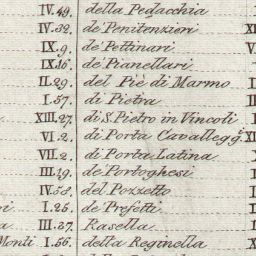 IV.49. della Pedacchia
IV.32. de' Penitenzieri
IX.9. de' Pettinari
IX.16. de' Pianellari
II.29. del Piè di Marmo
I.57. di Pietra
XIII.27. di S. Pietro in Vincoli
VI.2. di Porta Cavallegg.i
VII.2. di Porta Latina
III.19. de' Portoghesi
IV.53. del Pozzetto
I.25. de' Prefetti
III.27. Rasella
Monti I.56. della Reginella